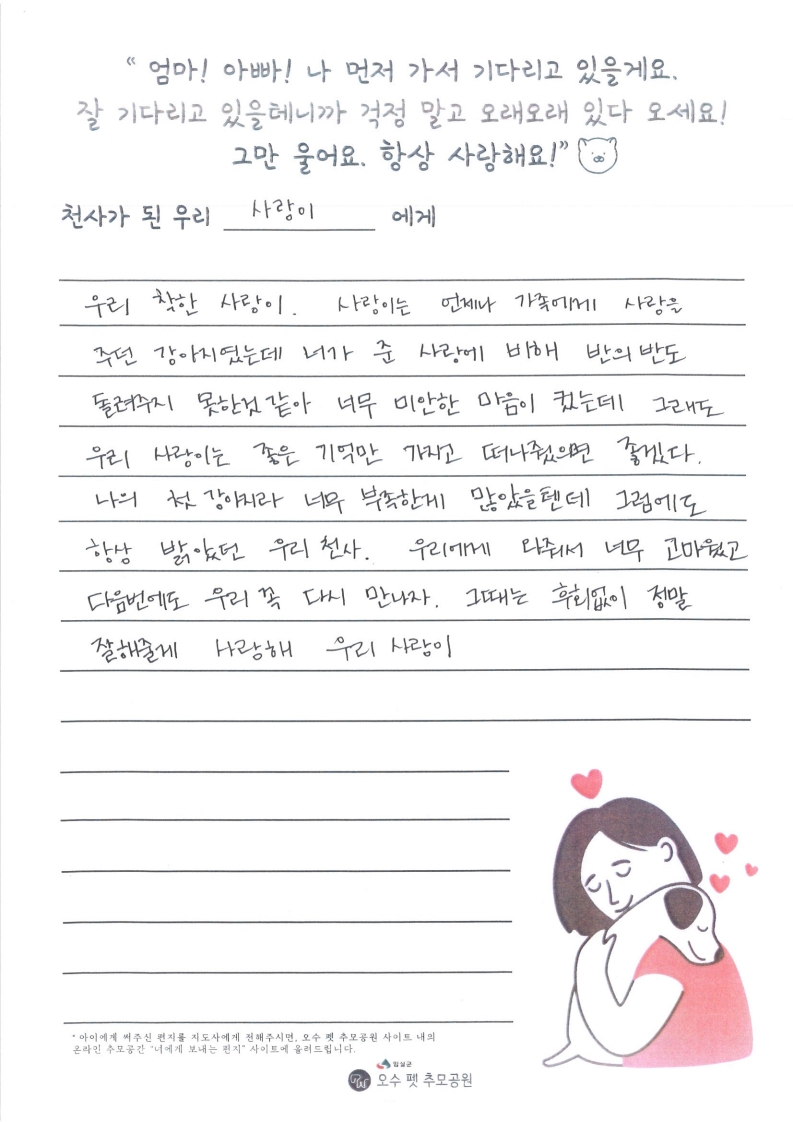 “ 엄마! 아빠! 나 먼저 가서 기다리고 있을게요.
잘 기다리고 있을테니까 걱정 말고 오래오래 있다 오세요!
그만 울어요. 항상 사랑해요!”
천사가 된 우리 사랑이 에게
우리 착한 사랑이. 사랑이는 언제나 가족에게 사랑을
주던 강아지였는데 너가 준 사랑에 비해 반의 반도
돌려주지 못한것 같아 너무 미안한 마음이 컸는데 그래도
우리 사랑이는 좋은 기억만 가지고 떠나줬으면 좋겠다.
나의 첫 강아지라 너무 부족한게 많았을텐데 그럼에도
항상 밝았던 우리 천사. 우리에게 와줘서 너무 고마웠고
다음번에도 우리 꼭 다시 만나자. 그때는 후회없이 정말
잘해줄게 사랑해 우리 사랑이
* 아이에게 써주신 편지를 지도사에게 전해주시면, 오수 펫 추모공원 사이트 내의
온라인 추모공간 “너에게 보내는 편지” 사이트에 올려드립니다.
임실군
오수 펫 추모공원